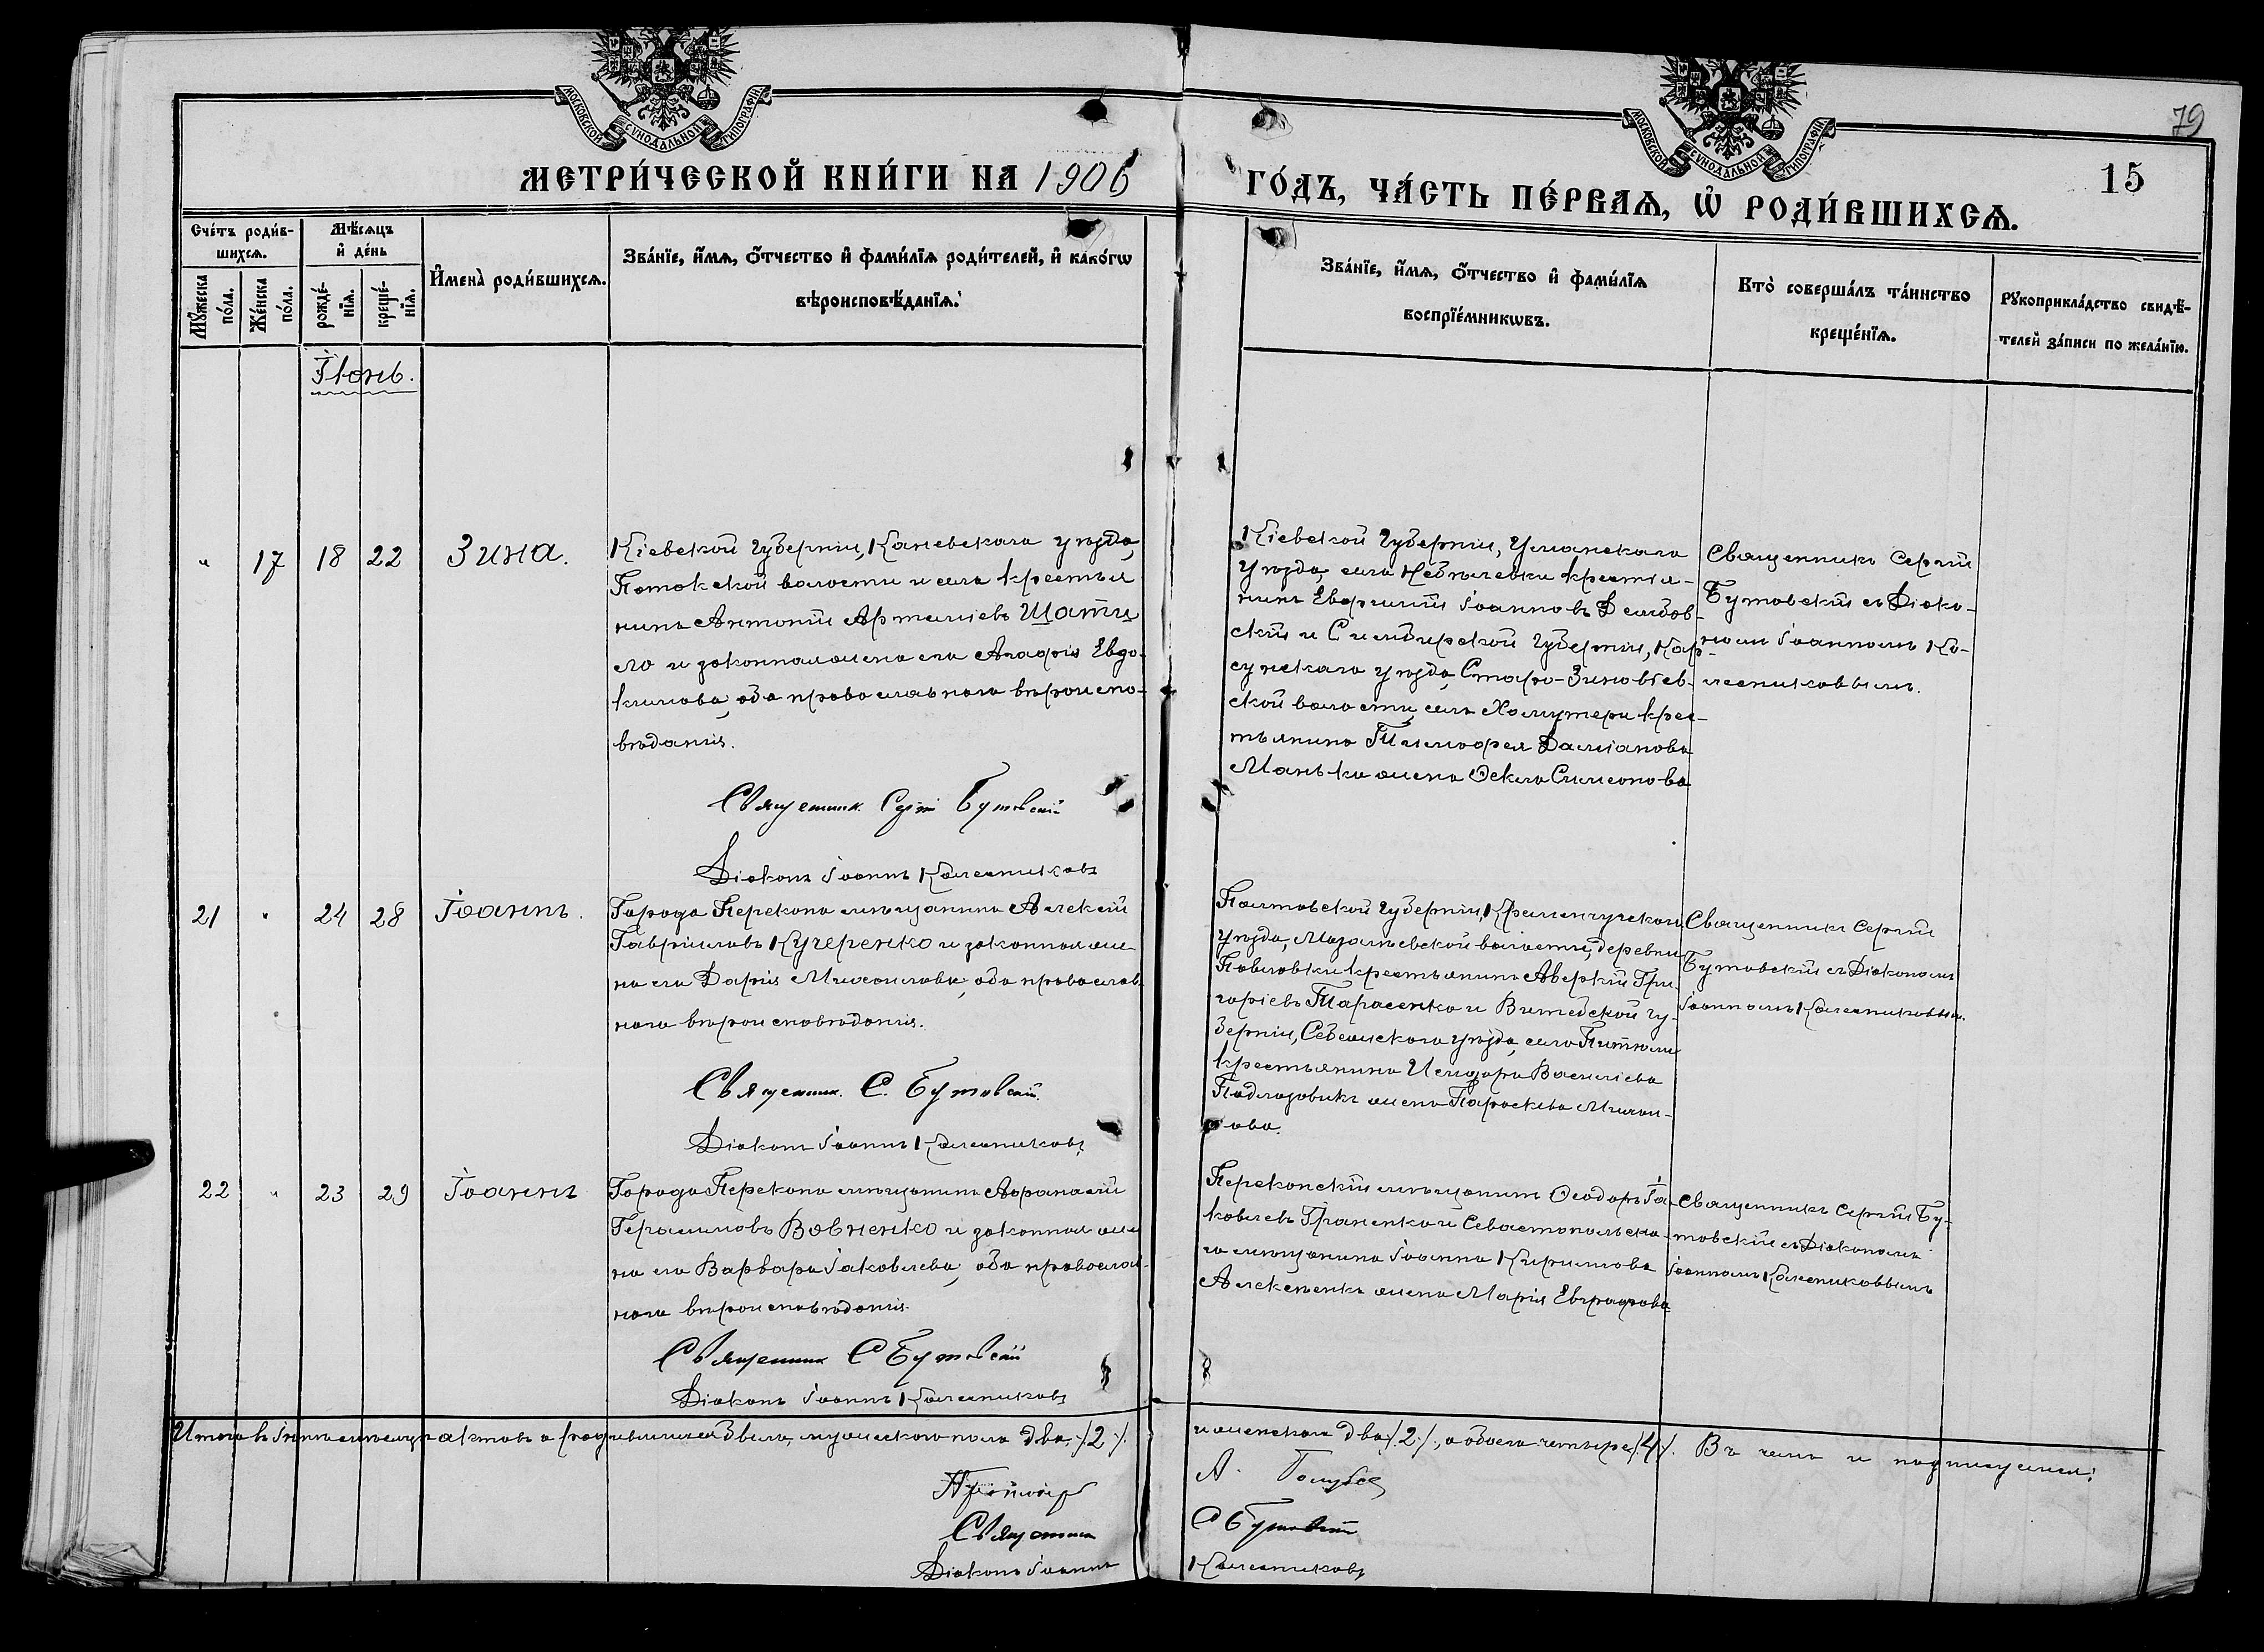 79
15
МОСКОВСКОЙ СѴНОДАЛЬНОЙ ТИПОГРАФІИ
МОСКОВСКОЙ СѴНОДАЛЬНОЙ ТИПОГРАФІИ
МЕТРИ́ЧЕСКОЙ КНИ́ГИ НА 1906
ГО́ДЪ, ЧА́СТЬ ПЕ́РВАѦ, Ѡ҆ РОДИ́ВШИХСѦ.
Сче́тъ роди́в-
шихсѧ.
Мꙋ́жеска по́ла.
Же́нска по́ла.
Мѣ́сѧцъ
и҆ де́нь
рожде́-нїѧ.
креще́-нїѧ.
И҆мена̀ роди́вшихсѧ.
Зва́нїе, и҆́мѧ, ѻ҆́тчество и҆ фами́лїѧ роди́телей, и҆ како́гѡ
вѣроисповѣ́данїѧ.
Зва́нїе, и҆́мѧ, ѻ҆́тчество и҆ фами́лїѧ
воспрїе́мникѡвъ.
Кто̀ соверша́лъ та́инство
креще́нїѧ.
Рꙋкоприкла́дство свидѣ́-
телей за́писи по жела́нїю.
Іюнь.
" 17 18 22 Зина.
Кіевской губерніи, Каневскаго уѣзда,
Потокской волости и села крестья
нинъ Антоній Артеміевъ Шати
ло и законная жена его Агафія Евдо-
кимова, оба православнаго вѣроиспо-
вѣданія.
Священник Сергій Бутовскій
Діаконъ Іоаннъ Колесниковъ
Кіевской губерніи, Уманскаго
уѣзда, села крестья-
нинъ Іоанновъ
скій и Симбирской губерніи, Кар-
сунскаго уѣзда, Старо-Зиновіев-
ской волости, села Хомутери крес-
тьянина Тимофея Даміанова
Манька жена Ѳекла Симеонова
Священникъ Сергій
Бутовскій съ Діако-
номъ Іоанномъ Ко-
лесниковымъ.
21 " 24 28 Іоаннъ.
Города Перекопа мѣщанинъ Алексій
Гавріиловъ Кучеренко и законная же
на его Дарія Михаилова, оба православ-
наго вѣроисповѣданія.
Священник. С. Бутовскій.
Діаконъ Іоаннъ Колесниковъ
Полтавской губерніи, Кременчугскаго
уѣзда, волости, деревни
Павловки крестьянинъ Аверкій Гри-
горіевъ Тарасенко и Витебской гу-
берніи, Себежскаго уѣзда, села
крестьянина Исидора Василіева
жена Параскева Михаи-
лова.
Священникъ Сергій
Бутовскій съ Діакономъ
Іоанномъ Колесниковым.
22 " 23 29 Іоаннъ
Города Перекопа мѣщанинъ Аѳанасій
Герасимовъ Вовненко и законная же
на его Варвара Іаковлева, оба православ-
наго вѣроисповѣданія.
Священник С Бутовскій
Діаконъ Іоаннъ Колесниковъ
Перекопскій мѣщанинъ Ѳеодоръ Іа-
ковлевъ Граненко и Севастопольска-
го мѣщанина Іоанна Кириллова
жена Марія Евграфова
Священникъ Сергій Бу-
товскій съ Діакономъ
Іоанномъ Колесниковымъ
Итого въ Іюнѣ мѣсяцѣ актовъ о родившихся было, мужескаго пола два /2/.
и женскаго два /2/., а обоего четыре /4/. Въ чемъ и подписуемся:
А. Голубев
Священник
С Бутовскій
Діаконъ Іоаннъ
Колесниковъ